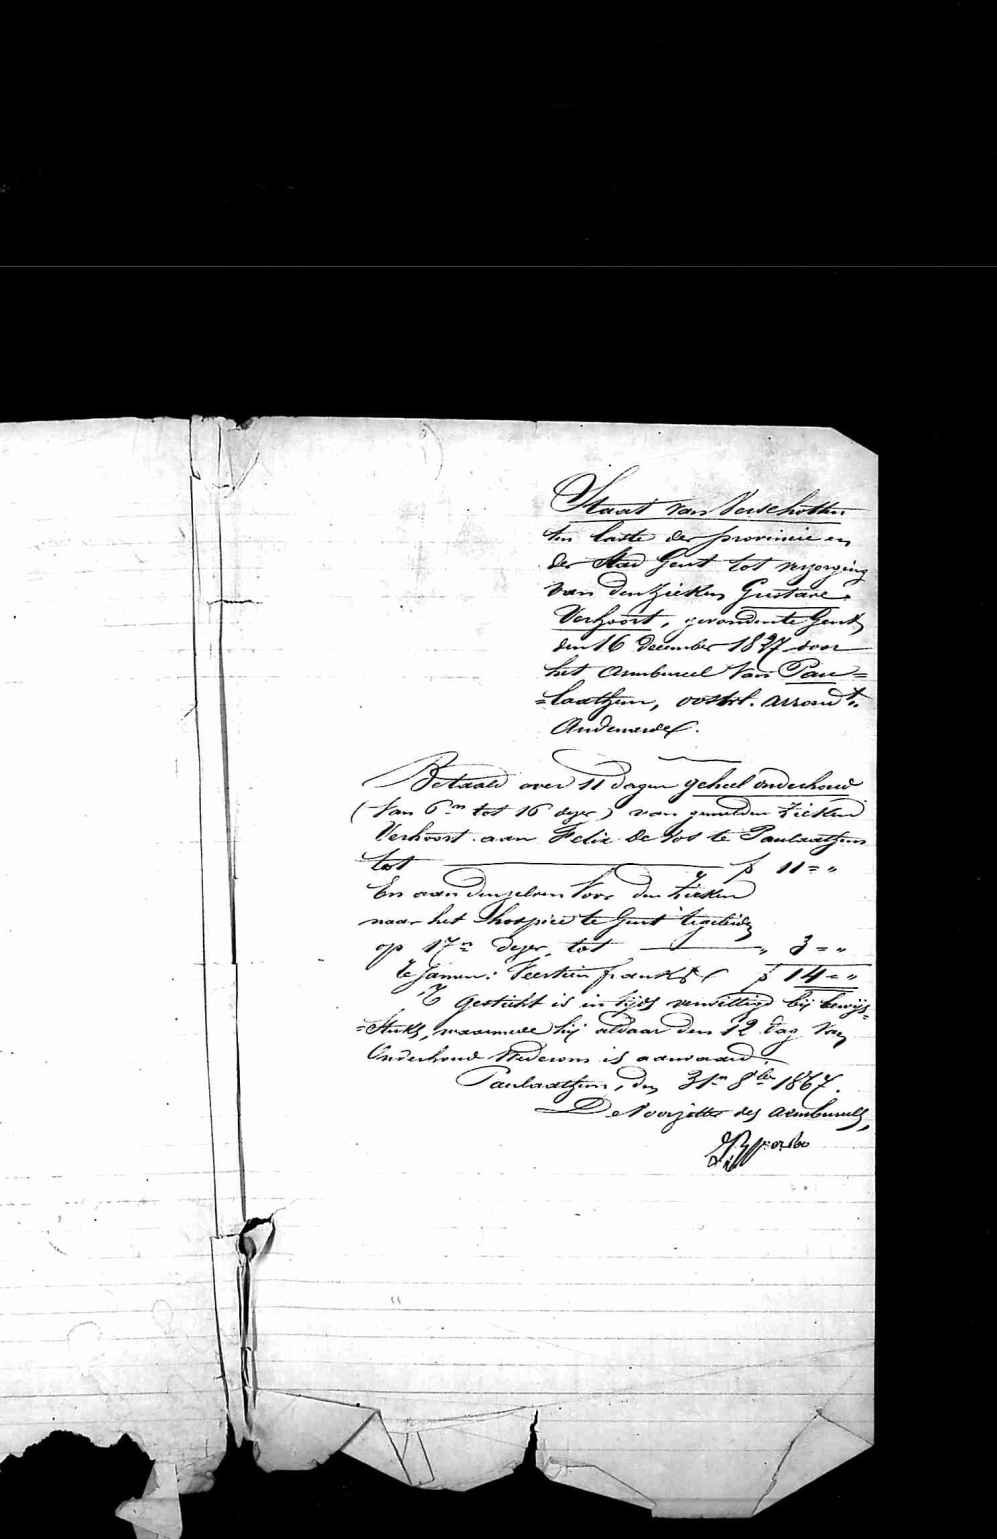 Staat van Verschotten
ten laste der provincie en
der Stad Gent tot verzorging
van den Zieken Gustave
Verhoort, geronden te Gent
den 16 december 1827 door
het Armbureel van Pau=
=laathem, oostvl. arrond.t
Audenaerde.
Betaald over 11 dagen geheel onderhoud
(van 6.n tot 16 dezer) van gemelden Zieken
Verhoort aan Felix De Vos te Paulaathem
tot f 11 = "
En aan denzelven voor den Zieken
naar het hospice te Gent
op 17.n dezer, tot " 3 = "
te zamen: Veertien franks f 14 = "
'T Gesticht is in tijds verwittigd bij bewijs-
=stuk, waarmede hij aldaar den 12 dag van
Onderhoud is aanvaard.
Paulaathem, den 31.n 8.ber 1867.
De Voorzitter des Armbureels,